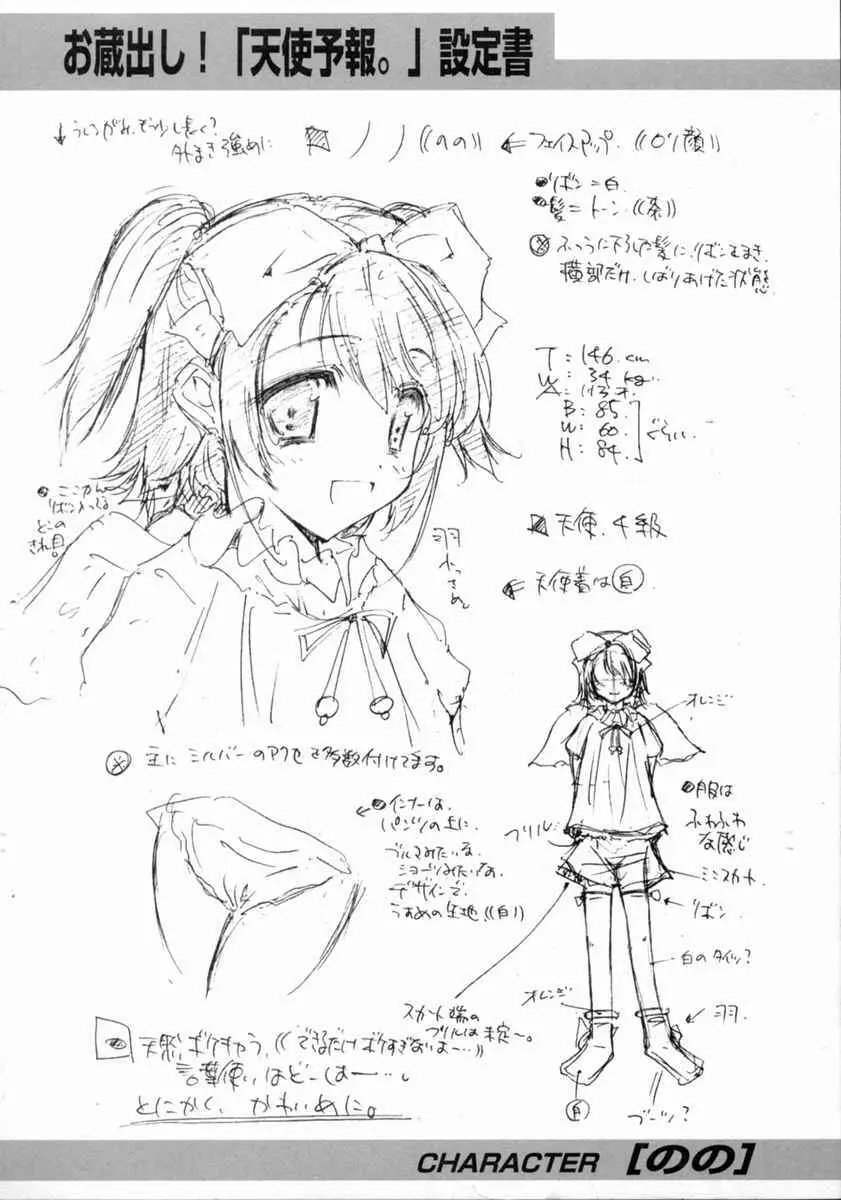 お蔵出し!「天使予報。」設定書
↓うしろがみ、もう少し長く?
外まき強めに
ノノ((のの))
←フェイスアップ.((ロリ顔))
リボン=白.
髪=トーン.((茶))
※ふつうに下ろした髪に、リボンをまき、
横部だけ、しばりあげた状態
T:146.cm
W:34kg.
B:85.
W:60.
H:84.
ぐらい.
天使.4級
←天使着は白.
羽
ちっさめ
※主にシルバーのアクセを多数付けてます。
オレンジ
←インナーは、
パンツの上に、
ブルマみたいな、
ショーツみたいな、
デザインで、
うすめの生地((白))
服は
ふわふわ
な感じ
フリル
ミニスカート
リボン
白のタイツ?
オレンジ
羽.
スカート端の
フリルは未定〜。
白
ブーツ?
天然、ボケキャラ、((できるだけボケすぎないよー…))
言葉使いはどーしよー…。
とにかく、かわいめに。
CHARACTER [のの]